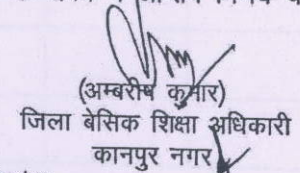 (अम्बरीष कुमार)
जिला बेसिक शिक्षा अधिकारी
कानपुर नगर